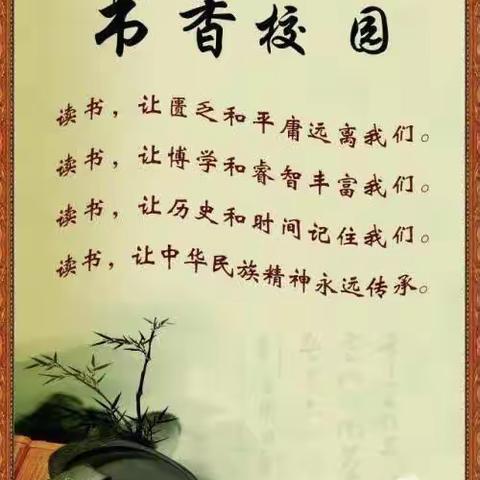 书香校园
读书，让匮乏和平庸远离我们。
读书，让博学和睿智丰富我们。
读书，让历史和时间记住我们。
读书，让中华民族精神永远传承。